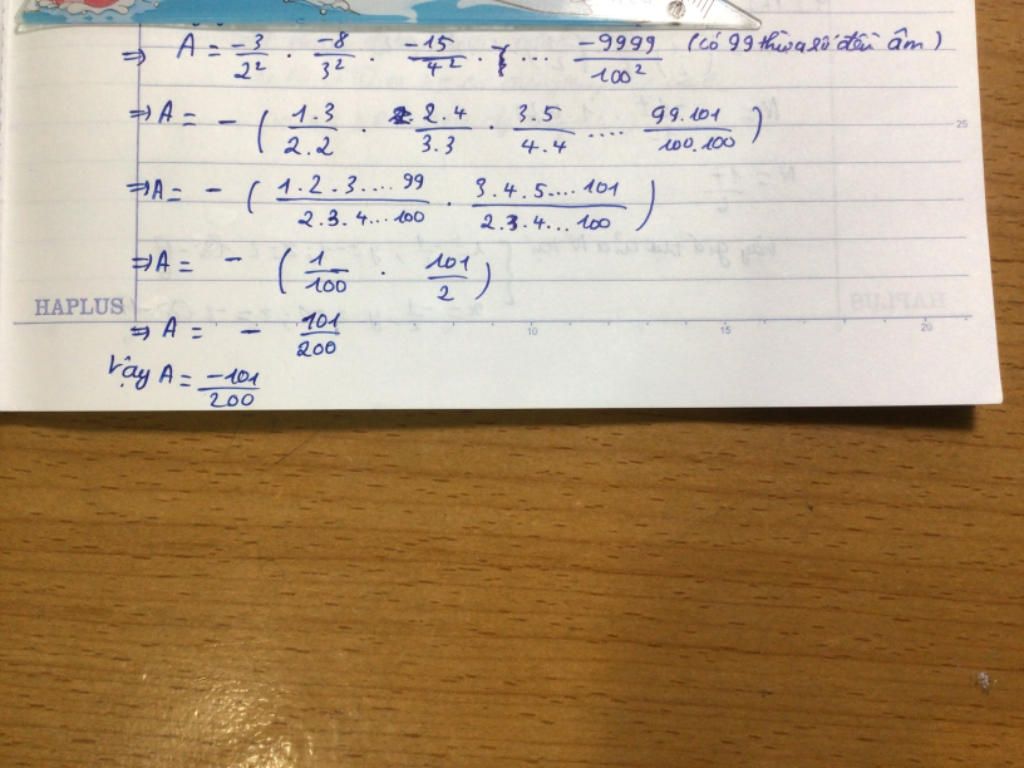 ⇒ A = -3/2² . -8/3² . -15/4² . ... -9999/100² (có 99 thừa số đều âm)
⇒ A = - ( 1.3/2.2 . 2.4/3.3 . 3.5/4.4 .... 99.101/100.100 )
25
⇒ A = - ( 1.2.3....99/2.3.4...100 . 3.4.5....101/2.3.4...100 )
⇒ A = - ( 1/100 . 101/2 )
HAPLUS
⇒ A = - 101/200
10 15 20
Vậy A = -101/200